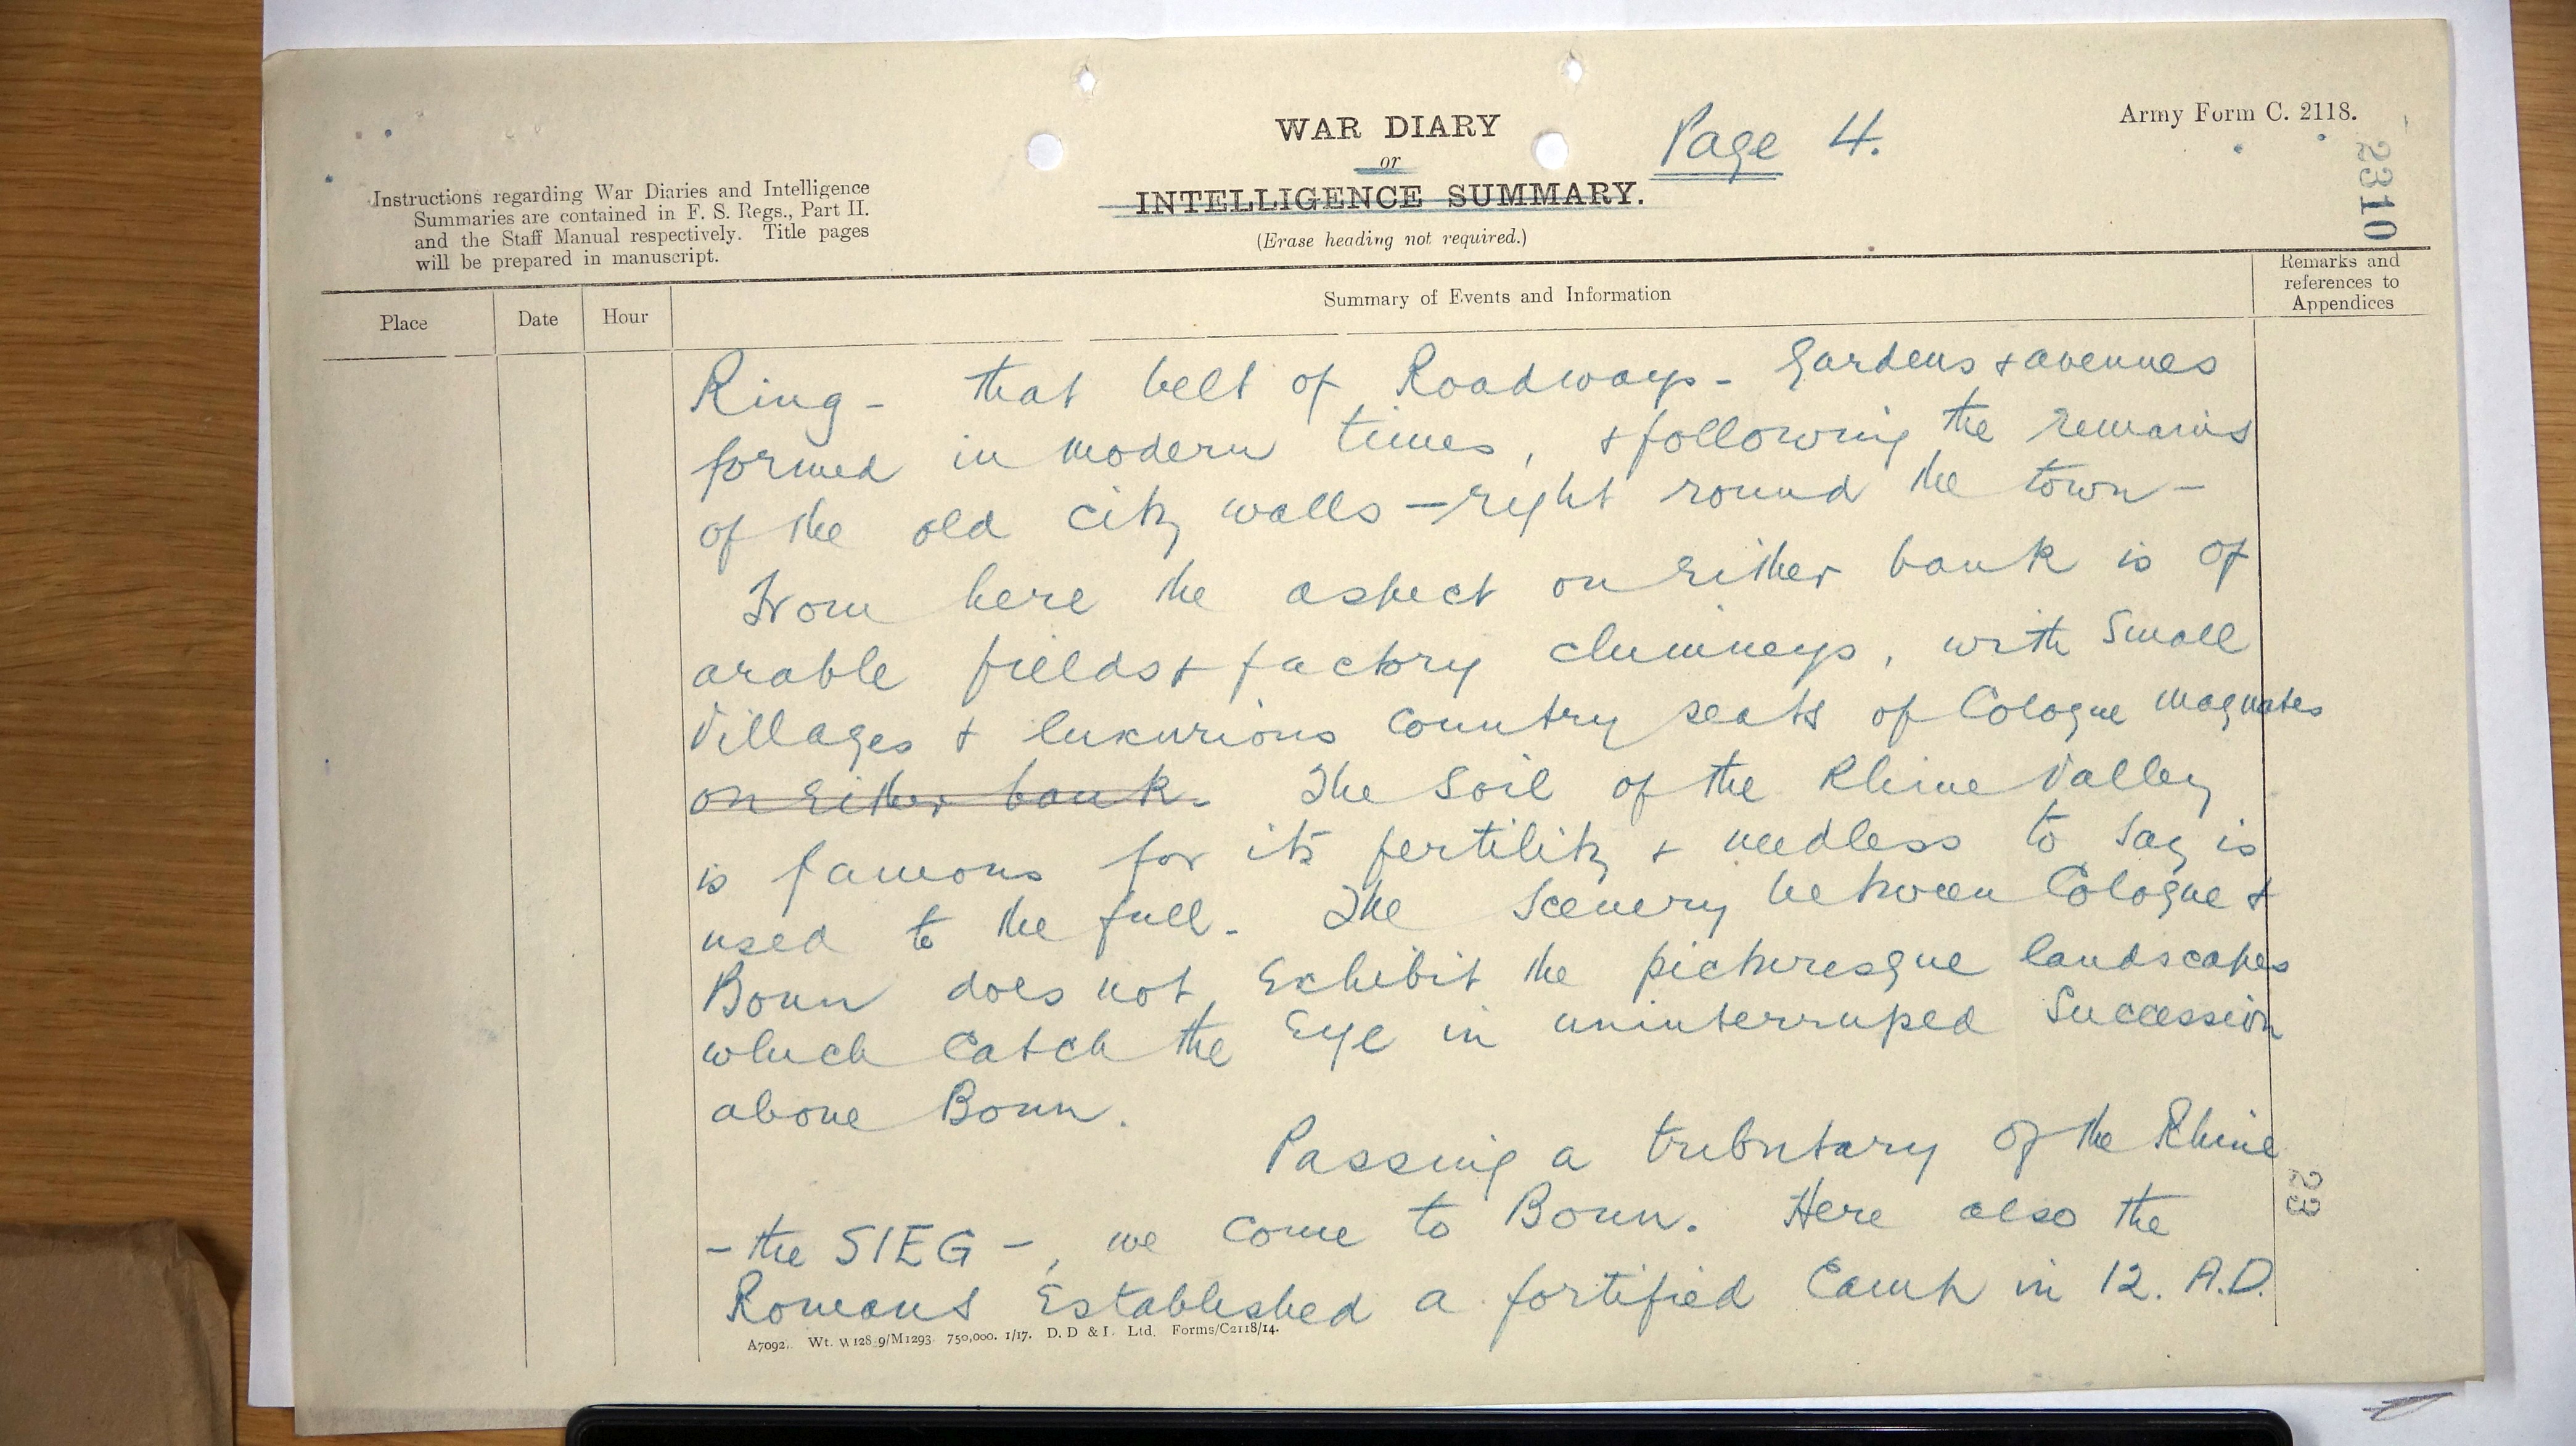 WAR DIARY
or
INTELLIGENCE SUMMARY.
(Erase heading not required.)
Page 4.
Army Form C. 2118.
2310
Instructions regarding War Diaries and Intelligence
Summaries are contained in F. S. Regs., Part II.
and the Staff Manual respectively. Title pages
will be prepared in manuscript.
Place
Date
Hour
Summary of Events and Information
Remarks and
references to
Appendices
Ring - that belt of Roadways - Gardens & avenues
formed in modern times, & following the remains
of the old city walls - right round the town -
From here the aspect on either bank is of
arable fields & factory chimneys, with small
villages & luxurious country seats of Cologne magnates
on either bank. The soil of the Rhine Valley
is famous for its fertility & needless to say is
used to the full. The scenery between Cologne &
Bonn does not exhibit the picturesque landscapes
which catch the eye in uninterruped succession
above Bonn.
Passing a tributary of the Rhine
- the SIEG -, we come to Bonn. Here also the
Romans established a fortified camp in 12. A.D.
23
A7092. Wt. W128 9/M1293 750,000. 1/17. D. D & L. Ltd. Forms/C2118/14.